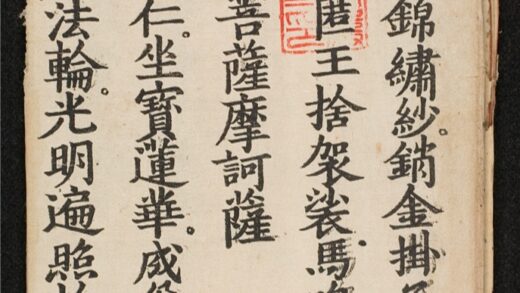 錦繡紗。銷金掛
匿王捨袈裟馬
菩薩摩訶薩
仁。坐寶蓮華。成
法輪。光明遍照